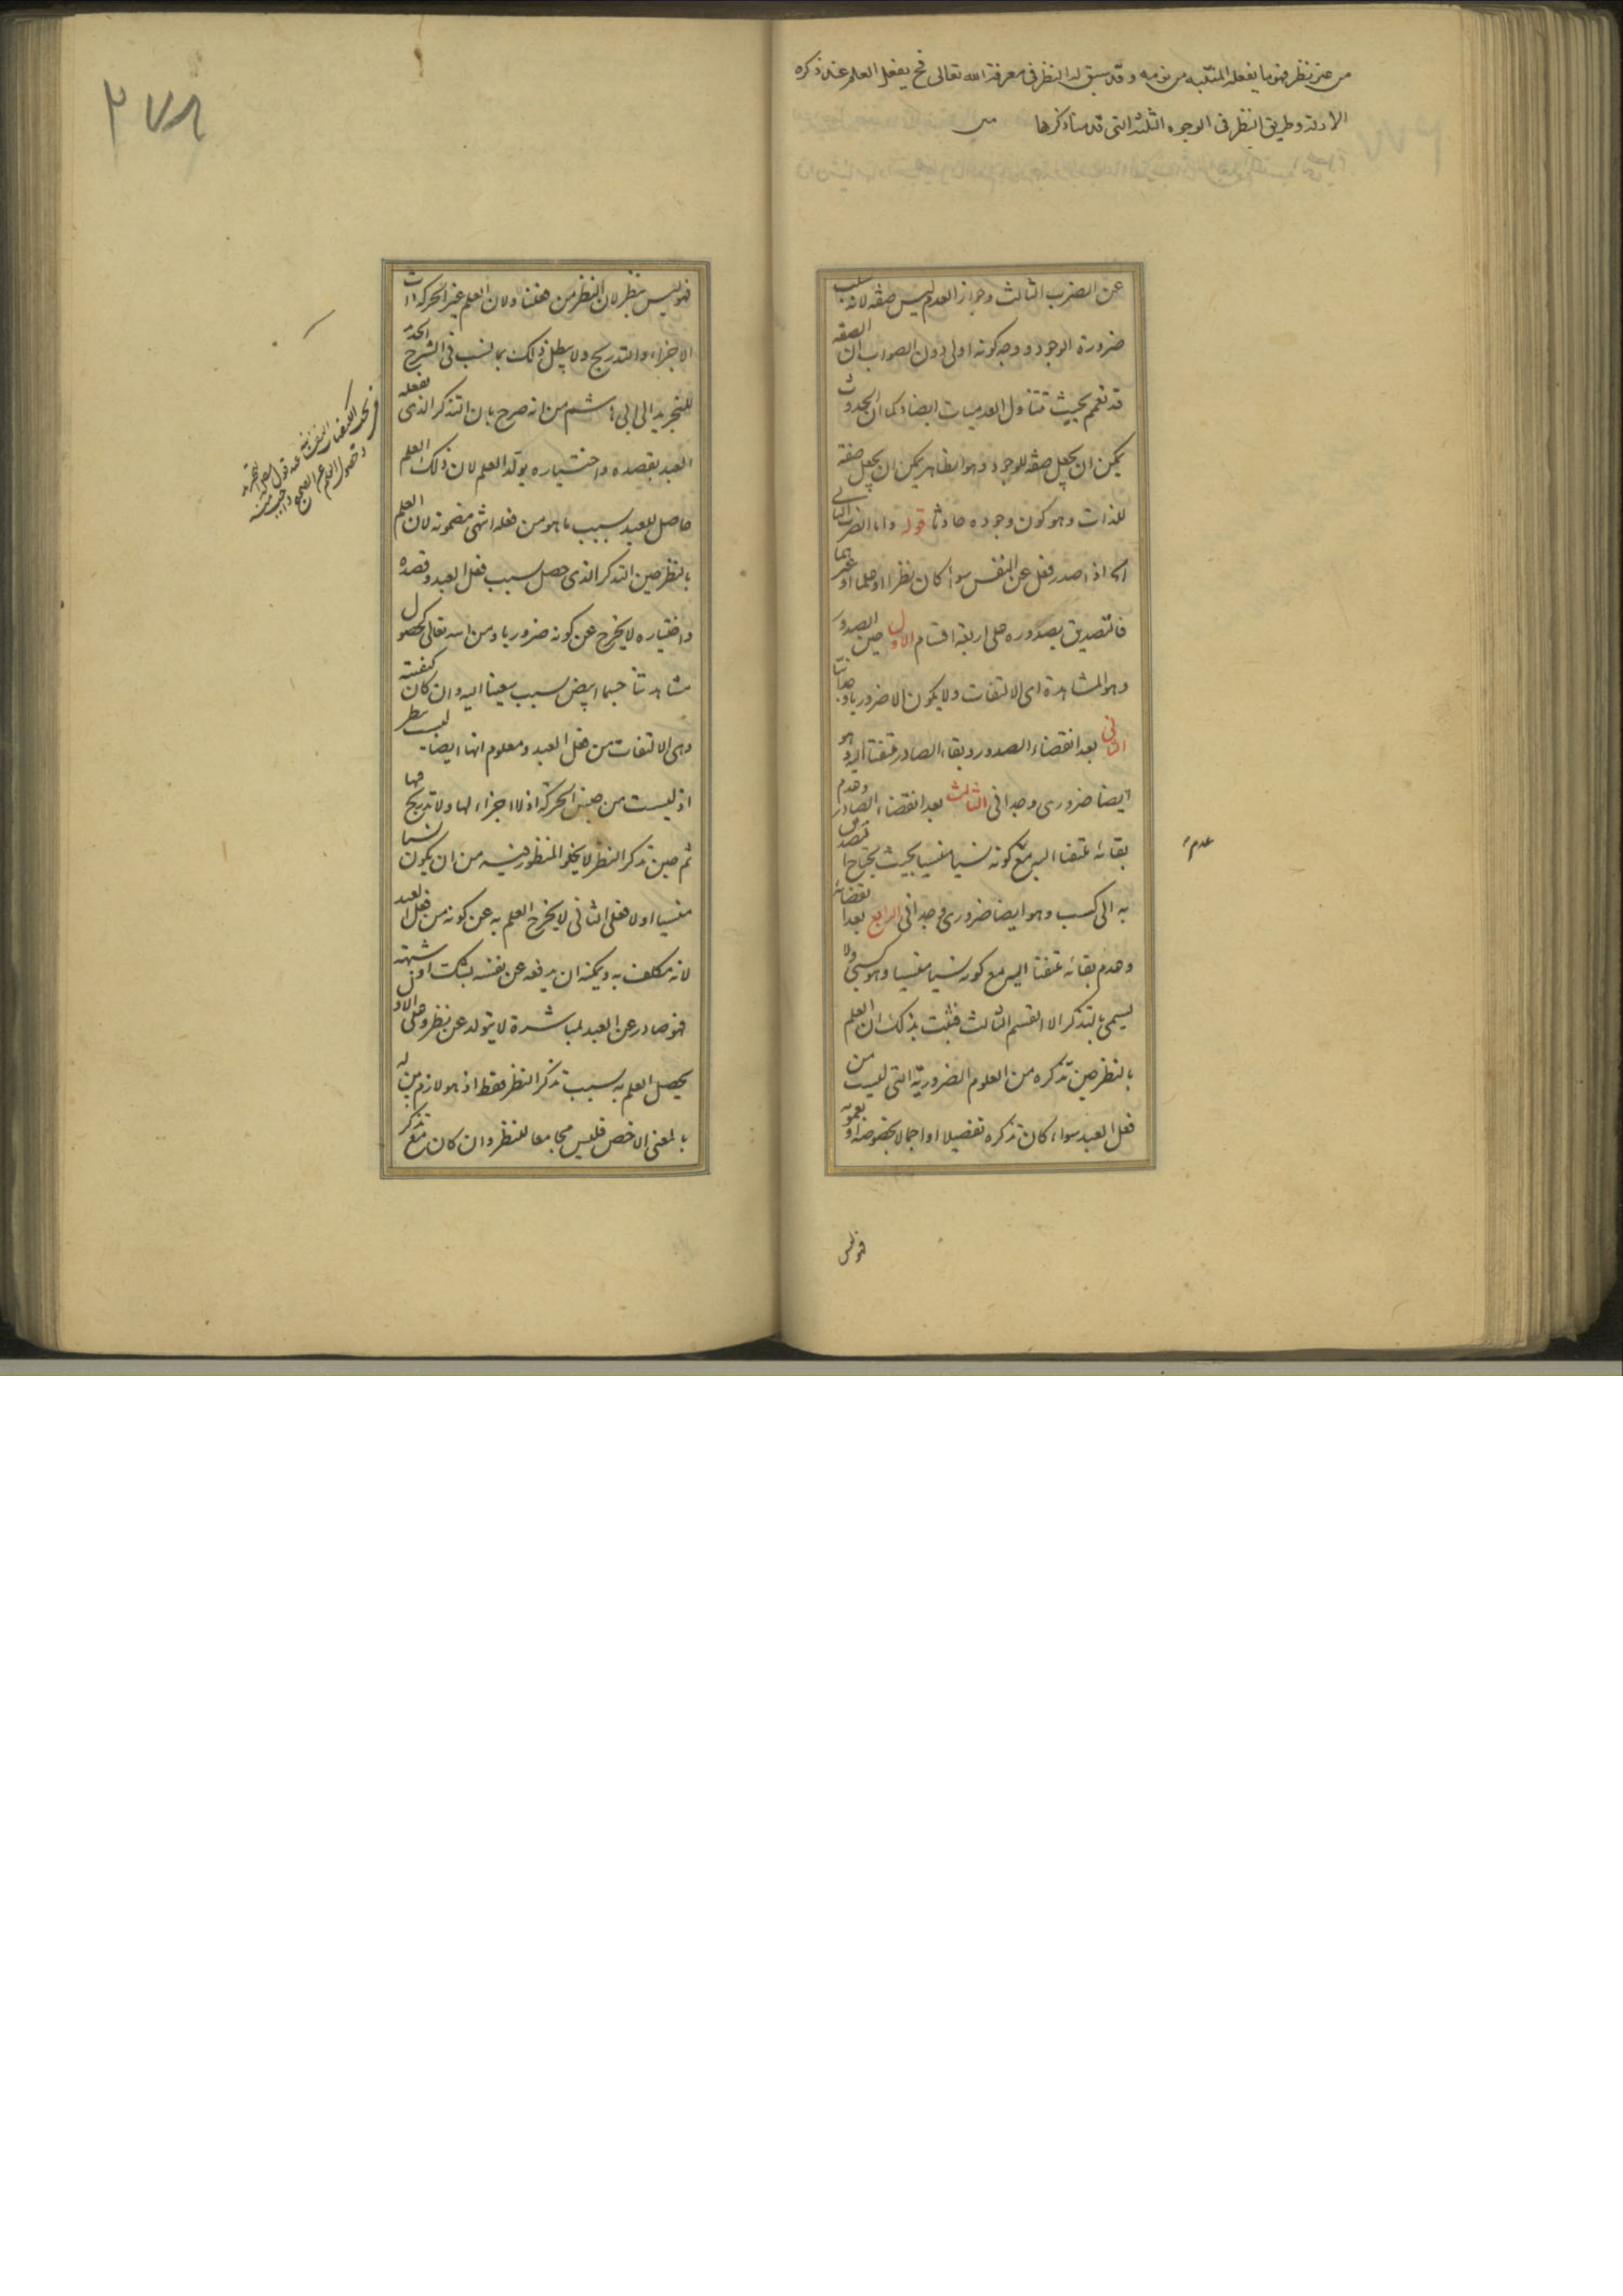 من غير نظر فهو ما يفعله المنتبه من نومه وقد سبق له النظر فى معرفة الله تعالى فح يفعل العلم عند ذكره
الادلة وطريق النظر فى الوجوه الثلثة التى قدمنا ذكرها
عن الضرب الثالث وجواز العدم ليس صفة لانه سلب
ضرورة الوجود ووجه كونه اولى دون الصواب ان الصفة
قد تعمم بحيث تتناول العدميات ايضا وكما ان الحدوث
يمكن ان يجعل صفة للوجود وهو ظاهر يمكن ان يجعل صفة
للذات وهو كون وجوده حادثا قوله واما الضرب الثانى
اى اذا صدر فعل عن النفس سواء كان نظرا او علما او غيرهما
فالتصديق بصدوره على اربعة اقسام الاول حين الصدور
وهو المشاهدة اى الالتفات ولا يكون الا ضروريا
الثانى بعد انقضاء الصدور وبقاء الصادر ملتفتا اليه وهو
ايضا ضرورى وجدانى الثالث بعد انقضاء الصادر وعدم
بقائه ملتفتا اليه مع كونه نسيا منسيا بحيث يحتاج
به الى كسب وهو ايضا ضرورى وجدانى الرابع بعد انقضائه
وعدم بقائه ملتفتا اليه مع كونه نسيا منسيا وهو كسبى ولا
يسمى بالتذكر الا القسم الثالث فثبت بذلك ان العلم
بالنظر حين تذكره من العلوم الضرورية التى ليست من
فعل العبد سواء كان تذكره تفصيلا او اجمالا بخصوصه او بعمومه
عدم
فهو ليس
٢٧٨
فهو ليس بنظر لان النظر من فعلنا ولان العلم غير الحركة ذات
الاجزاء والتدريج ولا يبطل ذلك بما نسب فى الشرح الجديد
للتجريد الى ثم من انه صرح بان التذكر الذى يفعله
العبد بقصده واختياره يولد العلم لان ذلك العلم
حاصل للعبد بسبب ما هو من فعله انتهى مضمونه لان العلم
بالنظر حين التذكر الذى حصل بسبب فعل العبد وقصده
واختياره لا يخرج عن كونه ضروريا ومن الله تعالى كحصول
مشاهدتنا جسما ابيض بسبب سعينا اليه وان كان
وهى الالتفات من فعل العبد ومعلوم انها ايضا ليست بنظر
اذ ليست من جنس الحركة اذ لا اجزاء لها ولا تدريج فيها
ثم حين تذكر النظر لا يخلو المنظور فيه من ان يكون نسيا
منسيا اولا فعلى الثانى لا يخرج العلم به عن كونه من فعل العبد
لانه مكلف به ويمكنه ان يدفعه عن نفسه بشك او شبهة
فهو صادر عن العبد لمباشرة لا يتولد عن نظر وعلى الاول
يحصل العلم به بسبب تذكر النظر فقط اذ هو لازم بين له
بالمعنى الاخص فليس مجامعا للنظر وان كان مع تذكر